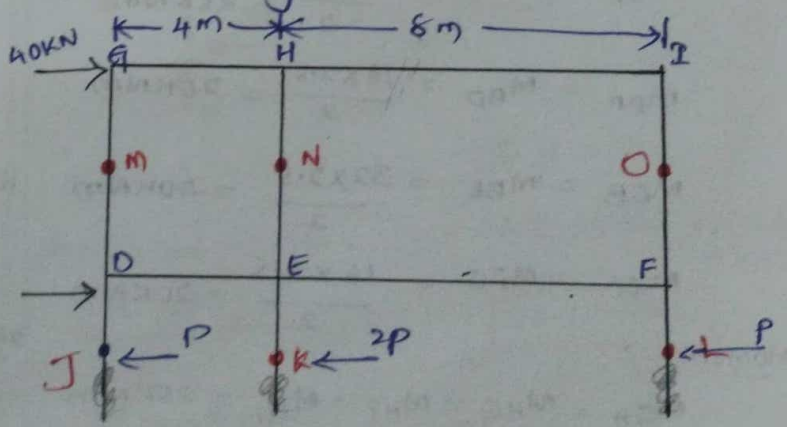 4m 8m
40KN G H I
M N O
D E F
J P K 2P L P